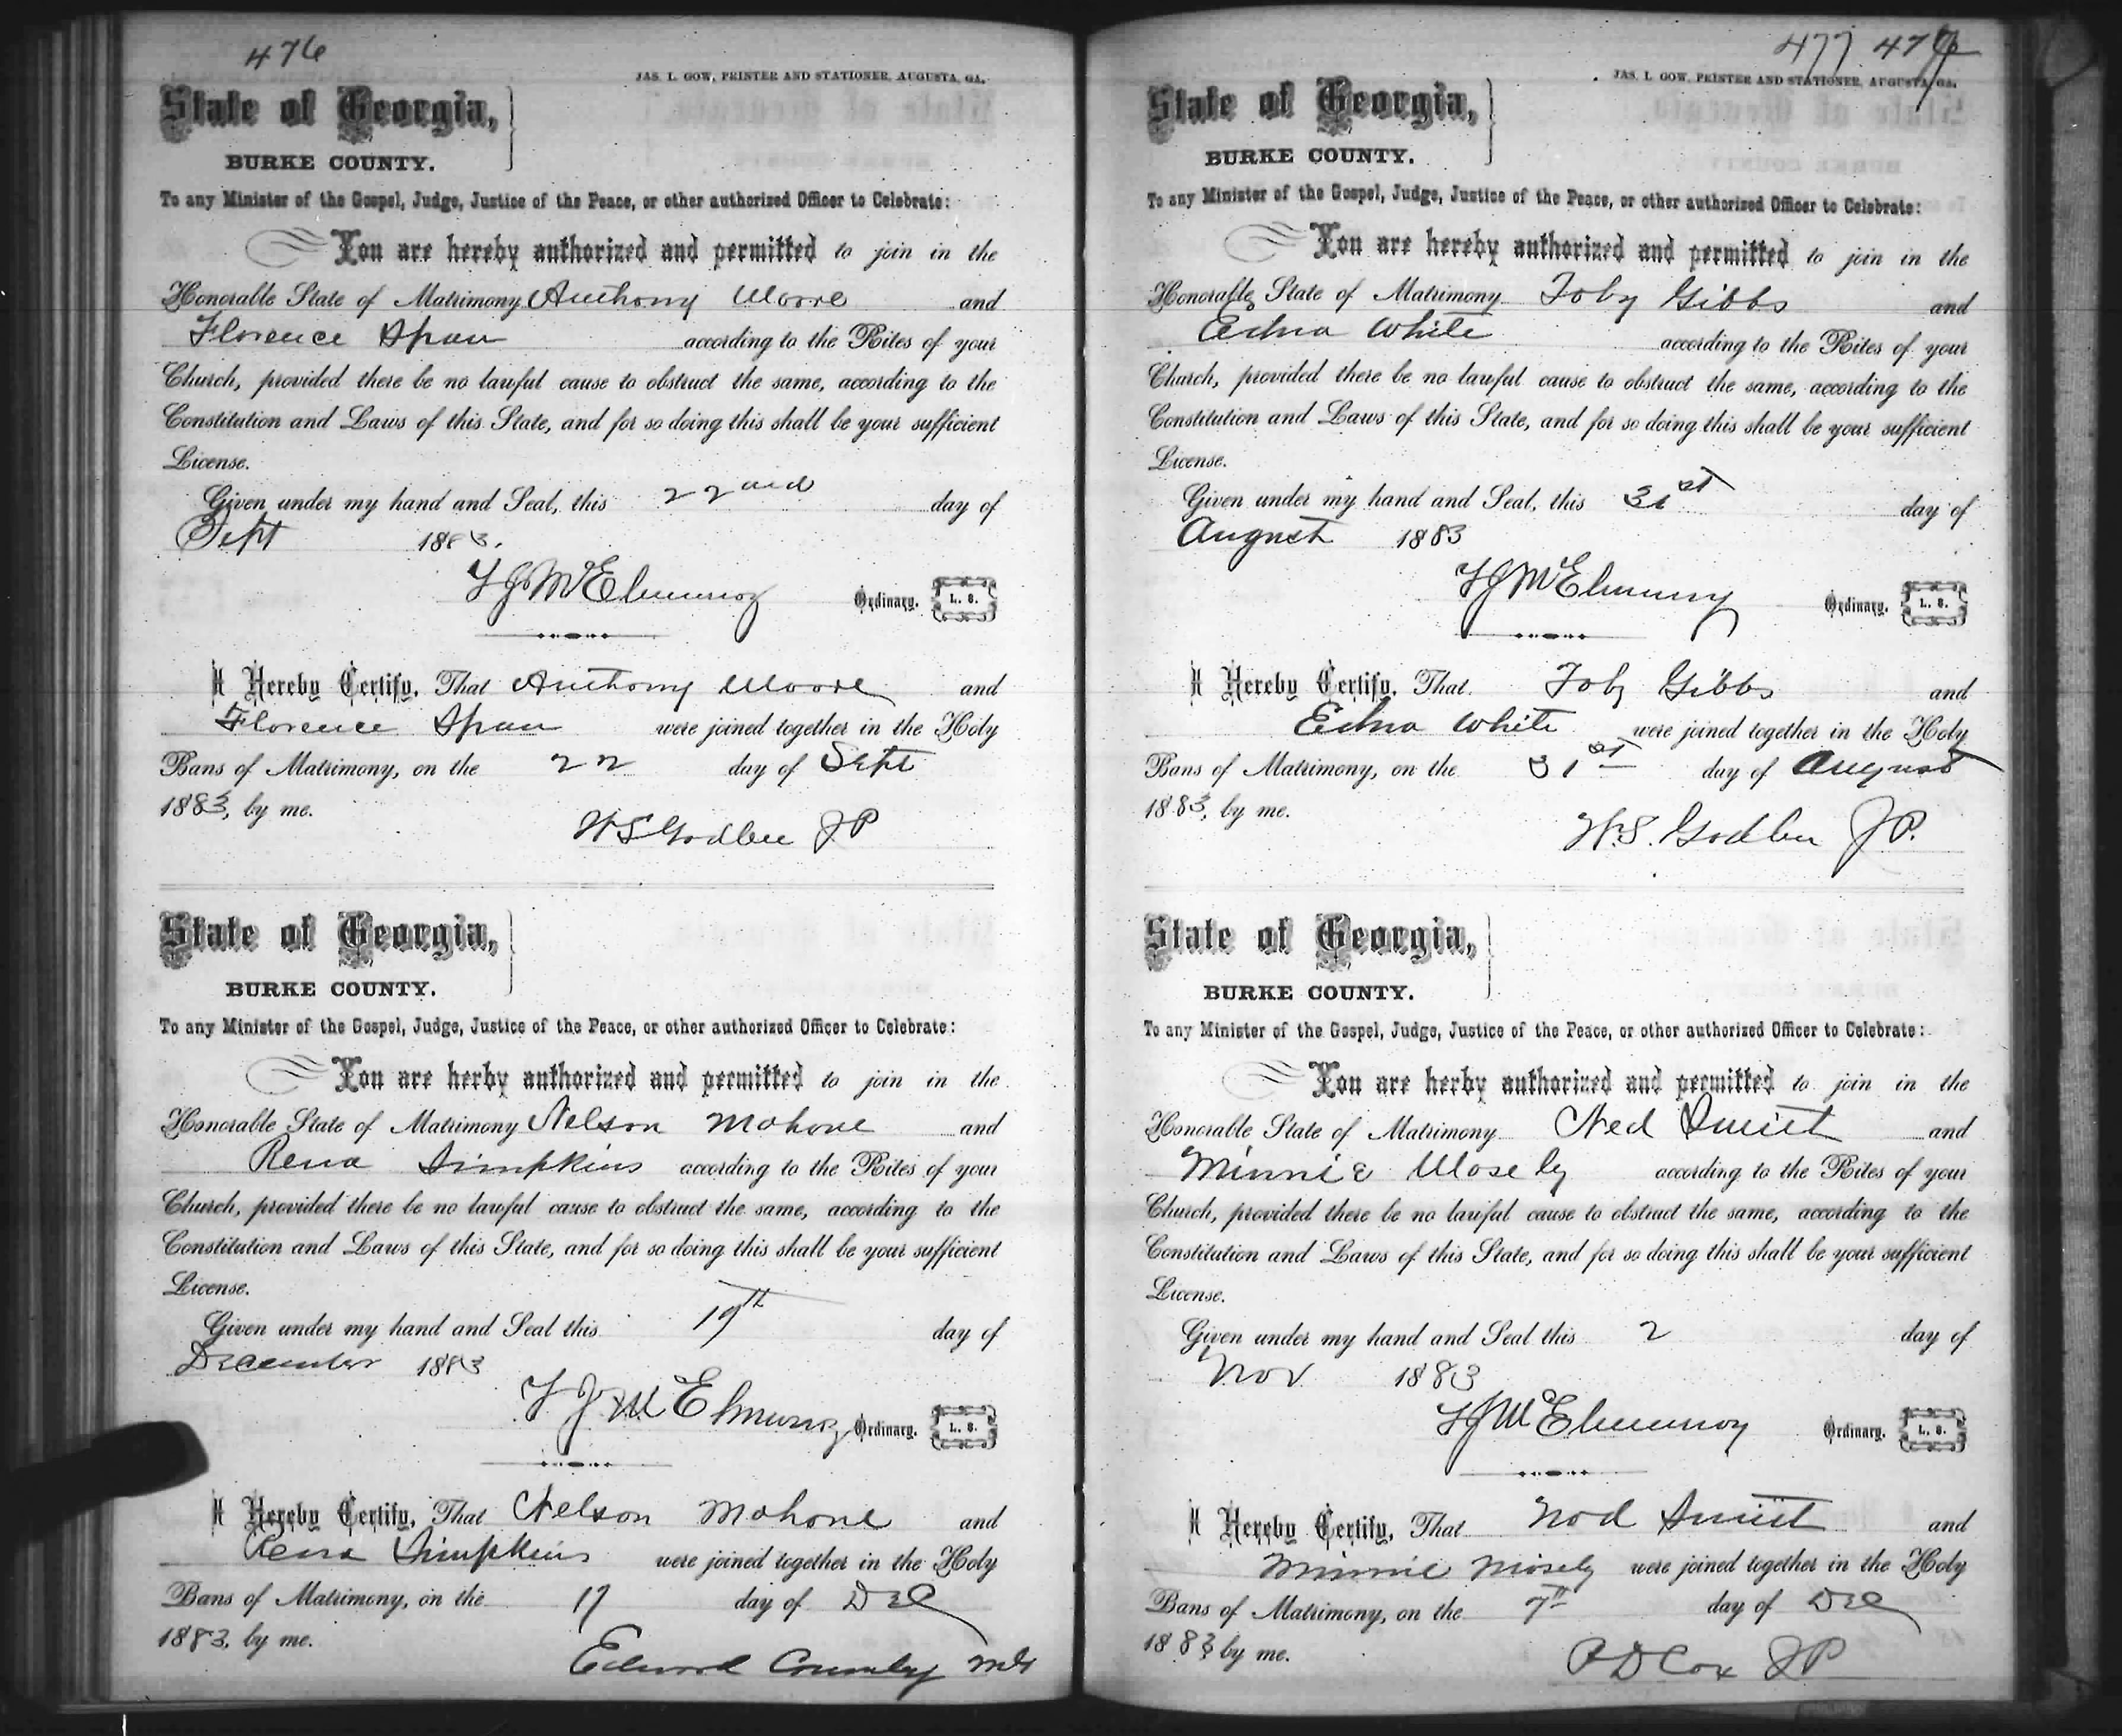 476
JAS. L. GOW, PRINTER AND STATIONER, AUGUSTA, GA.
State of Georgia,
BURKE COUNTY.
To any Minister of the Gospel, Judge, Justice of the Peace, or other authorized Officer to Celebrate:
You are hereby authorized and permitted to join in the
Honorable State of Matrimony Anthony Moore and
Florence Span according to the Rites of your
Church, provided there be no lawful cause to obstruct the same, according to the
Constitution and Laws of this State, and for so doing this shall be your sufficient
License.
Given under my hand and Seal, this 22nd day of
Sept 1883.
T J McElmurray Ordinary. L. S.
I Hereby Certify, That Anthony Moore and
Florence Span were joined together in the Holy
Bans of Matrimony, on the 22 day of Sept
1883, by me.
W S Godbee J P
State of Georgia,
BURKE COUNTY.
To any Minister of the Gospel, Judge, Justice of the Peace, or other authorized Officer to Celebrate:
You are herby authorized and permitted to join in the
Honorable State of Matrimony Nelson Mahone and
Rena Simpkins according to the Rites of your
Church, provided there be no lawful cause to obstruct the same, according to the
Constitution and Laws of this State, and for so doing this shall be your sufficient
License.
Given under my hand and Seal this 19th day of
December 1883
T J McElmurray Ordinary. L. S.
I Hereby Certify, That Nelson Mahone and
Rena Simpkins were joined together in the Holy
Bans of Matrimony, on the 19 day of Dec
1883, by me.
Edward
477
JAS. L. GOW, PRINTER AND STATIONER, AUGUSTA, GA.
State of Georgia,
BURKE COUNTY.
To any Minister of the Gospel, Judge, Justice of the Peace, or other authorized Officer to Celebrate:
You are hereby authorized and permitted to join in the
Honorable State of Matrimony Toby Gibbs and
Edna White according to the Rites of your
Church, provided there be no lawful cause to obstruct the same, according to the
Constitution and Laws of this State, and for so doing this shall be your sufficient
License.
Given under my hand and Seal, this 31st day of
August 1883
T J McElmurray Ordinary. L. S.
I Hereby Certify, That Toby Gibbs and
Edna White were joined together in the Holy
Bans of Matrimony, on the 31st day of August
1883, by me.
W. S. Godbee J P.
State of Georgia,
BURKE COUNTY.
To any Minister of the Gospel, Judge, Justice of the Peace, or other authorized Officer to Celebrate:
You are herby authorized and permitted to join in the
Honorable State of Matrimony Ned Smith and
Minnie Mosely according to the Rites of your
Church, provided there be no lawful cause to obstruct the same, according to the
Constitution and Laws of this State, and for so doing this shall be your sufficient
License.
Given under my hand and Seal this 2 day of
Nov 1883
T J McElmurray Ordinary. L. S.
I Hereby Certify, That Ned Smith and
Minnie Mosely were joined together in the Holy
Bans of Matrimony, on the 7th day of Dec
1883 by me.
P D Cox J P